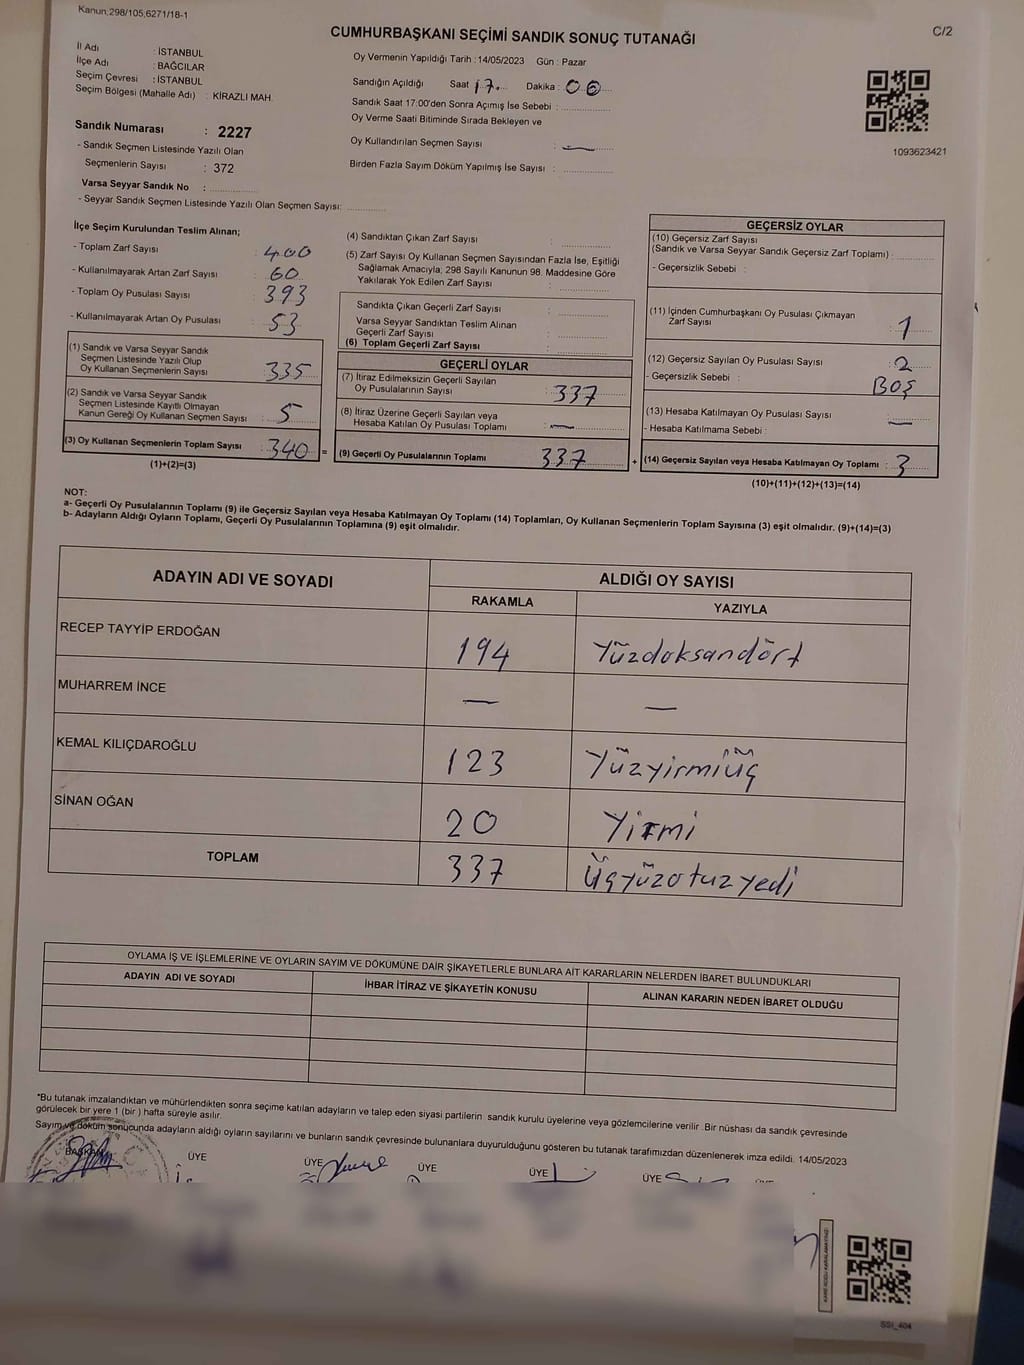 Kanun:298/105;6271/18-1
C/2
CUMHURBAŞKANI SEÇİMİ SANDIK SONUÇ TUTANAĞI
İl Adı : İSTANBUL
İlçe Adı : BAĞCILAR
Seçim Çevresi : İSTANBUL
Seçim Bölgesi (Mahalle Adı) : KİRAZLI MAH.
Oy Vermenin Yapıldığı Tarih : 14/05/2023 Gün : Pazar
Sandığın Açıldığı Saat 17. Dakika : 06
Sandık Saat 17:00'den Sonra Açımış İse Sebebi :
Oy Verme Saati Bitiminde Sırada Bekleyen ve
Oy Kullandırılan Seçmen Sayısı : —
Birden Fazla Sayım Döküm Yapılmış İse Sayısı :
1093623421
Sandık Numarası : 2227
- Sandık Seçmen Listesinde Yazılı Olan
Seçmenlerin Sayısı : 372
Varsa Seyyar Sandık No :
- Seyyar Sandık Seçmen Listesinde Yazılı Olan Seçmen Sayısı:
İlçe Seçim Kurulundan Teslim Alınan;
- Toplam Zarf Sayısı : 400
- Kullanılmayarak Artan Zarf Sayısı : 60
- Toplam Oy Pusulası Sayısı : 393
- Kullanılmayarak Artan Oy Pusulası : 53
(1) Sandık ve Varsa Seyyar Sandık
Seçmen Listesinde Yazılı Olup
Oy Kullanan Seçmenlerin Sayısı : 335
(2) Sandık ve Varsa Seyyar Sandık
Seçmen Listesinde Kayıtlı Olmayan
Kanun Gereği Oy Kullanan Seçmen Sayısı : 5
(3) Oy Kullanan Seçmenlerin Toplam Sayısı : 340 =
(1)+(2)=(3)
(4) Sandıktan Çıkan Zarf Sayısı :
(5) Zarf Sayısı Oy Kullanan Seçmen Sayısından Fazla İse, Eşitliği
Sağlamak Amacıyla; 298 Sayılı Kanunun 98. Maddesine Göre
Yakılarak Yok Edilen Zarf Sayısı :
Sandıkta Çıkan Geçerli Zarf Sayısı :
Varsa Seyyar Sandıktan Teslim Alınan
Geçerli Zarf Sayısı :
(6) Toplam Geçerli Zarf Sayısı :
GEÇERLİ OYLAR
(7) İtiraz Edilmeksizin Geçerli Sayılan
Oy Pusulalarının Sayısı : 337
(8) İtiraz Üzerine Geçerli Sayılan veya
Hesaba Katılan Oy Pusulası Toplamı : —
(9) Geçerli Oy Pusulalarının Toplamı 337 +
GEÇERSİZ OYLAR
(10) Geçersiz Zarf Sayısı
(Sandık ve Varsa Seyyar Sandık Geçersiz Zarf Toplamı) :
- Geçersizlik Sebebi :
(11) İçinden Cumhurbaşkanı Oy Pusulası Çıkmayan
Zarf Sayısı : 1
(12) Geçersiz Sayılan Oy Pusulası Sayısı : 2
- Geçersizlik Sebebi : BOŞ
(13) Hesaba Katılmayan Oy Pusulası Sayısı : —
- Hesaba Katılmama Sebebi :
(14) Geçersiz Sayılan veya Hesaba Katılmayan Oy Toplamı : 3
(10)+(11)+(12)+(13)=(14)
NOT:
a- Geçerli Oy Pusulalarının Toplamı (9) ile Geçersiz Sayılan veya Hesaba Katılmayan Oy Toplamı (14) Toplamları, Oy Kullanan Seçmenlerin Toplam Sayısına (3) eşit olmalıdır. (9)+(14)=(3)
b- Adayların Aldığı Oyların Toplamı, Geçerli Oy Pusulalarının Toplamına (9) eşit olmalıdır.
ADAYIN ADI VE SOYADI ALDIĞI OY SAYISI
RAKAMLA YAZIYLA
RECEP TAYYİP ERDOĞAN 194 Yüzdoksandört
MUHARREM İNCE — —
KEMAL KILIÇDAROĞLU 123 Yüzyirmiüç
SİNAN OĞAN 20 Yirmi
TOPLAM 337 Üçyüzotuzyedi
OYLAMA İŞ VE İŞLEMLERİNE VE OYLARIN SAYIM VE DÖKÜMÜNE DAİR ŞİKAYETLERLE BUNLARA AİT KARARLARIN NELERDEN İBARET BULUNDUKLARI
ADAYIN ADI VE SOYADI İHBAR İTİRAZ VE ŞİKAYETİN KONUSU ALINAN KARARIN NEDEN İBARET OLDUĞU
*Bu tutanak imzalandıktan ve mühürlendikten sonra seçime katılan adayların ve talep eden siyasi partilerin sandık kurulu üyelerine veya gözlemcilerine verilir .Bir nüshası da sandık çevresinde
görülecek bir yere 1 (bir ) hafta süreyle asılır.
Sayım ve döküm sonucunda adayların aldığı oyların sayılarını ve bunların sandık çevresinde bulunanlara duyurulduğunu gösteren bu tutanak tarafımızdan düzenlenerek imza edildi. 14/05/2023
BAŞKAN ÜYE ÜYE ÜYE ÜYE ÜYE
SSI_404